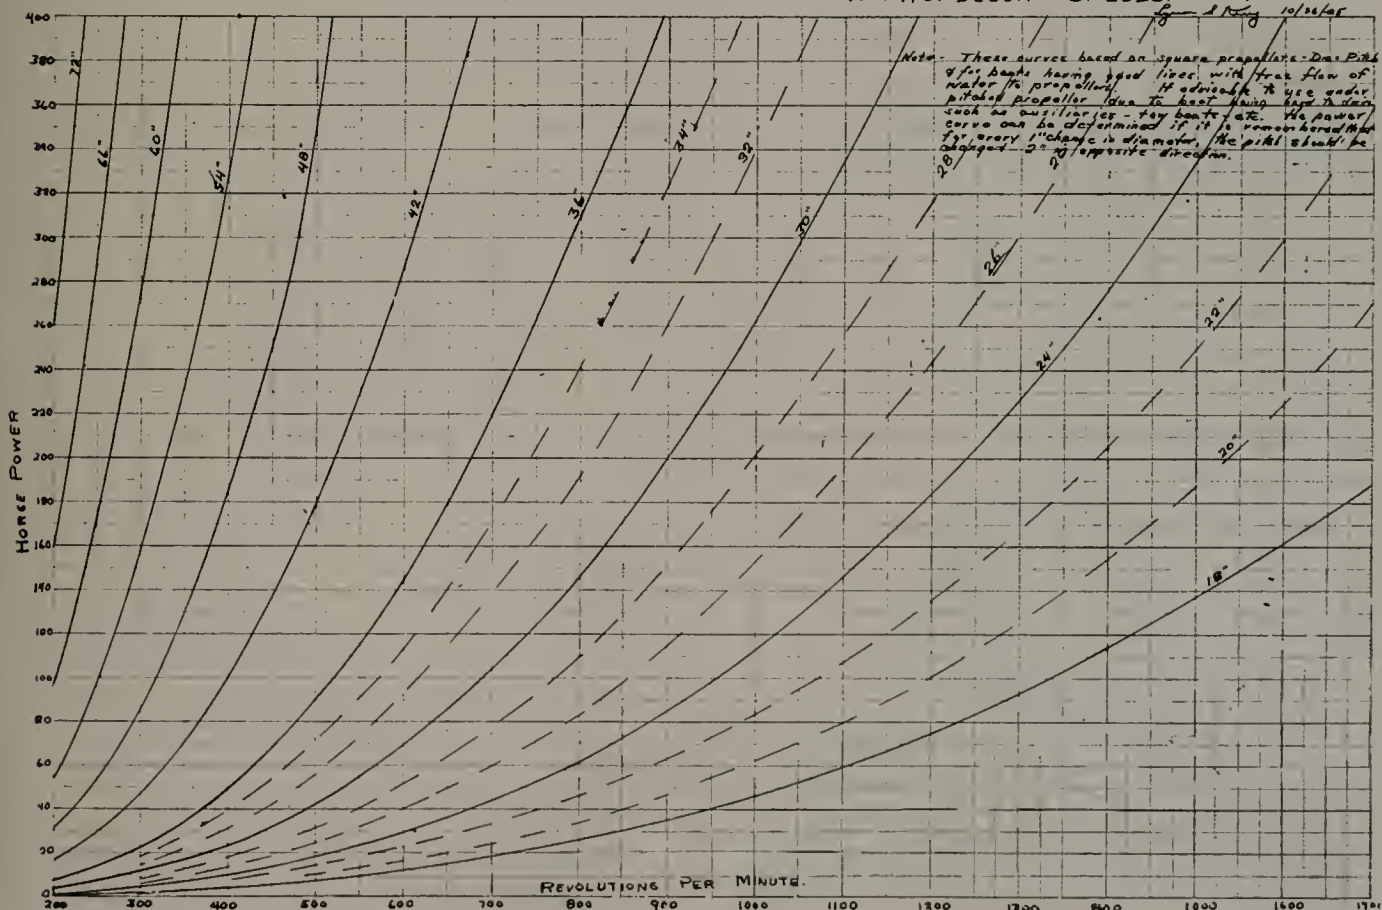 PROPELLER SPEEDS
10/26/25
Note - These curves based on square propellers - Dia = Pitch
& for boats having good lines with free flow of
water to propellers. If advisable to use under
pitched propeller due to boat being hard to
such as auxiliaries - tow boats - etc. the power
curve can be determined if it is remembered that
for every 1" change in diameter, the pitch should be
changed 2" in opposite direction.
72"
66"
60"
54"
48"
42"
36"
34"
32"
30"
28"
26"
24"
22"
20"
18"
HORSE POWER
400
380
360
340
320
300
280
260
240
220
200
180
160
140
120
100
80
60
40
20
0
REVOLUTIONS PER MINUTE.
200 300 400 500 600 700 800 900 1000 1100 1200 1300 1400 1500 1600 1700